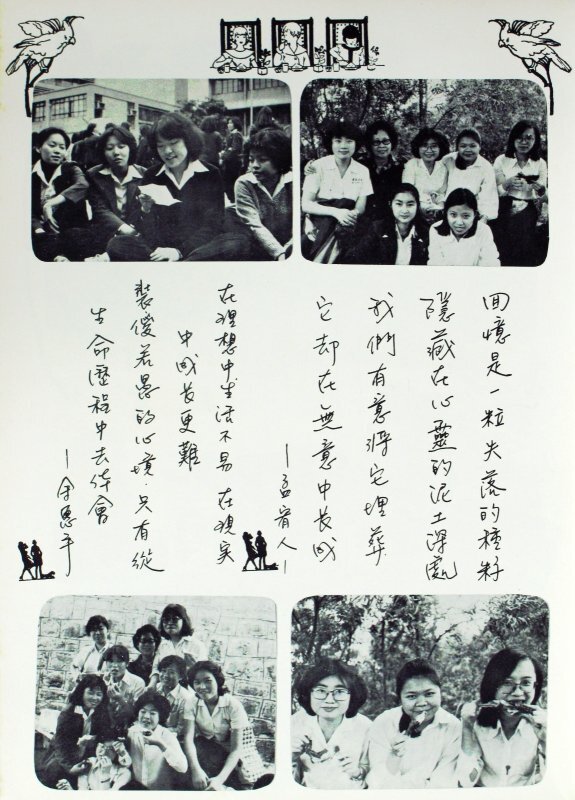 回憶是一粒失落的種籽
隱藏在心靈的泥土深處
我們有意將它埋葬
它却在無意中長成
在理想中生活不易 在現実
中成長更難
裝傻若愚的心境 只有從
生命歷程中去体會